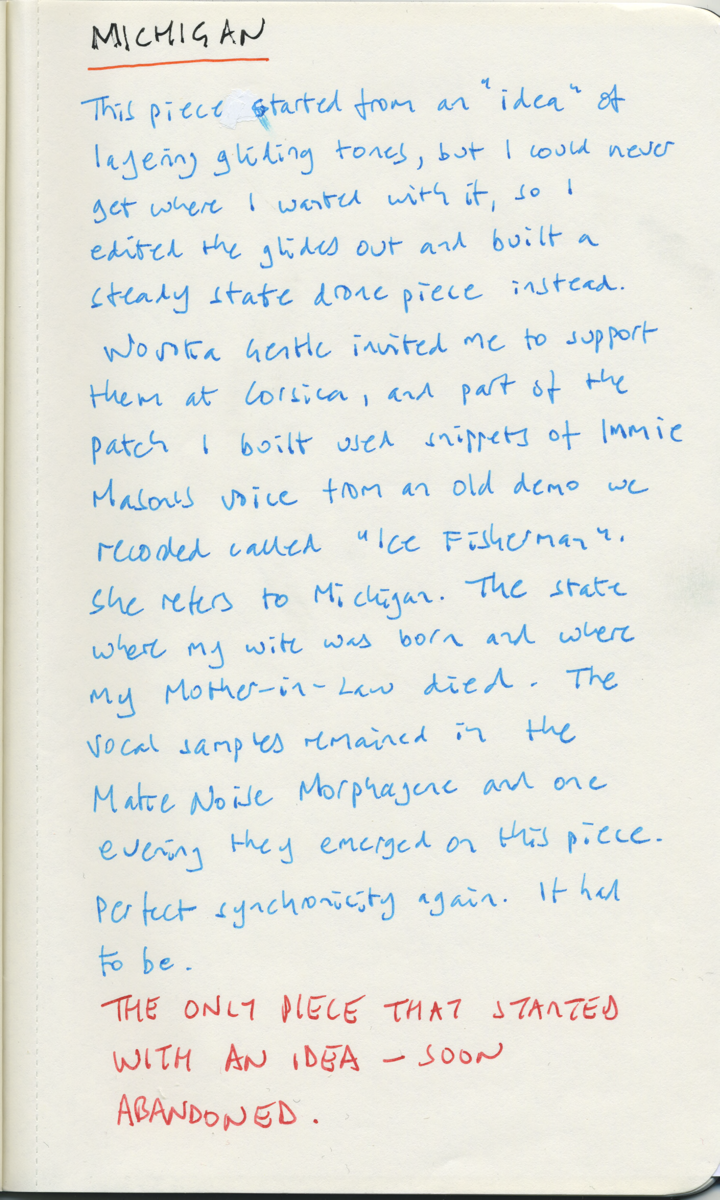 MICHIGAN
This piece started from an "idea" of
layering gliding tones, but I could never
get where I wanted with it, so I
edited the glides out and built a
steady state drone piece instead.
Wovoka Gentle invited me to support
them at Corsica, and part of the
patch I built used snippets of Immie
Masons voice from an old demo we
recorded called "Ice Fisherman".
She refers to Michigan. The state
where my wife was born and where
my Mother-in-Law died. The
vocal samples remained in the
Make Noise Morphagene and one
evening they emerged on this piece.
Perfect synchronicity again. It had
to be.
THE ONLY PIECE THAT STARTED
WITH AN IDEA – SOON
ABANDONED.